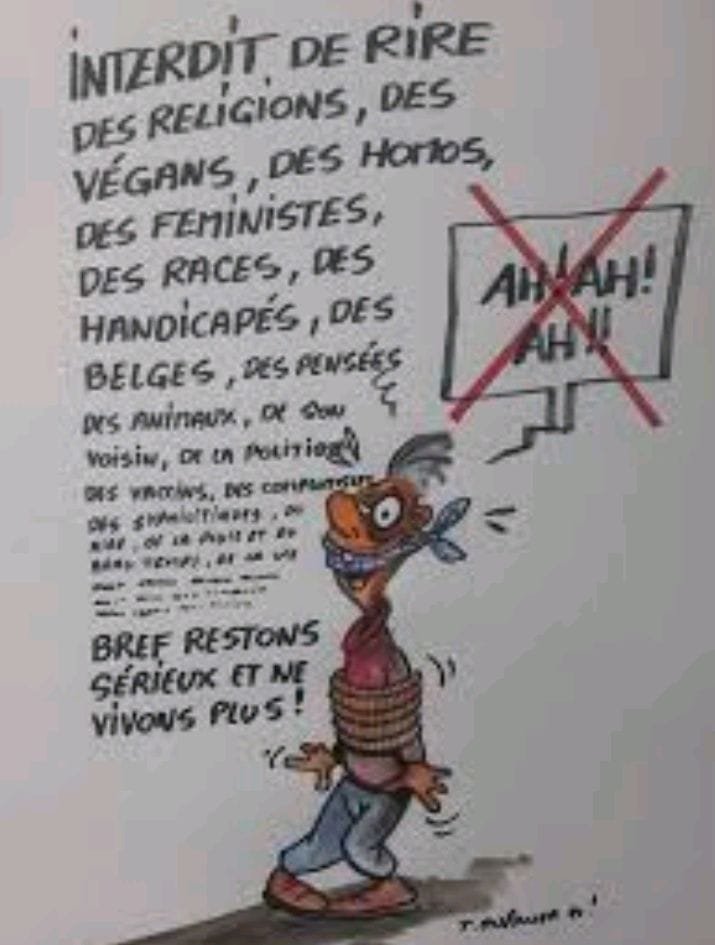 INTERDIT DE RIRE
DES RELIGIONS, DES
VÉGANS, DES HOMOS,
DES FEMINISTES,
DES RACES, DES
HANDICAPÉS, DES
BELGES, DES PENSÉES
DES ANIMAUX, DE SON
VOISIN, DE LA
DES VACCINS, DES
DES
DE LA PLUIE ET DU
BEAU TEMPS, DE LA VIE
BREF RESTONS
SÉRIEUX ET NE
VIVONS PLUS!
AH! AH!
AH!!